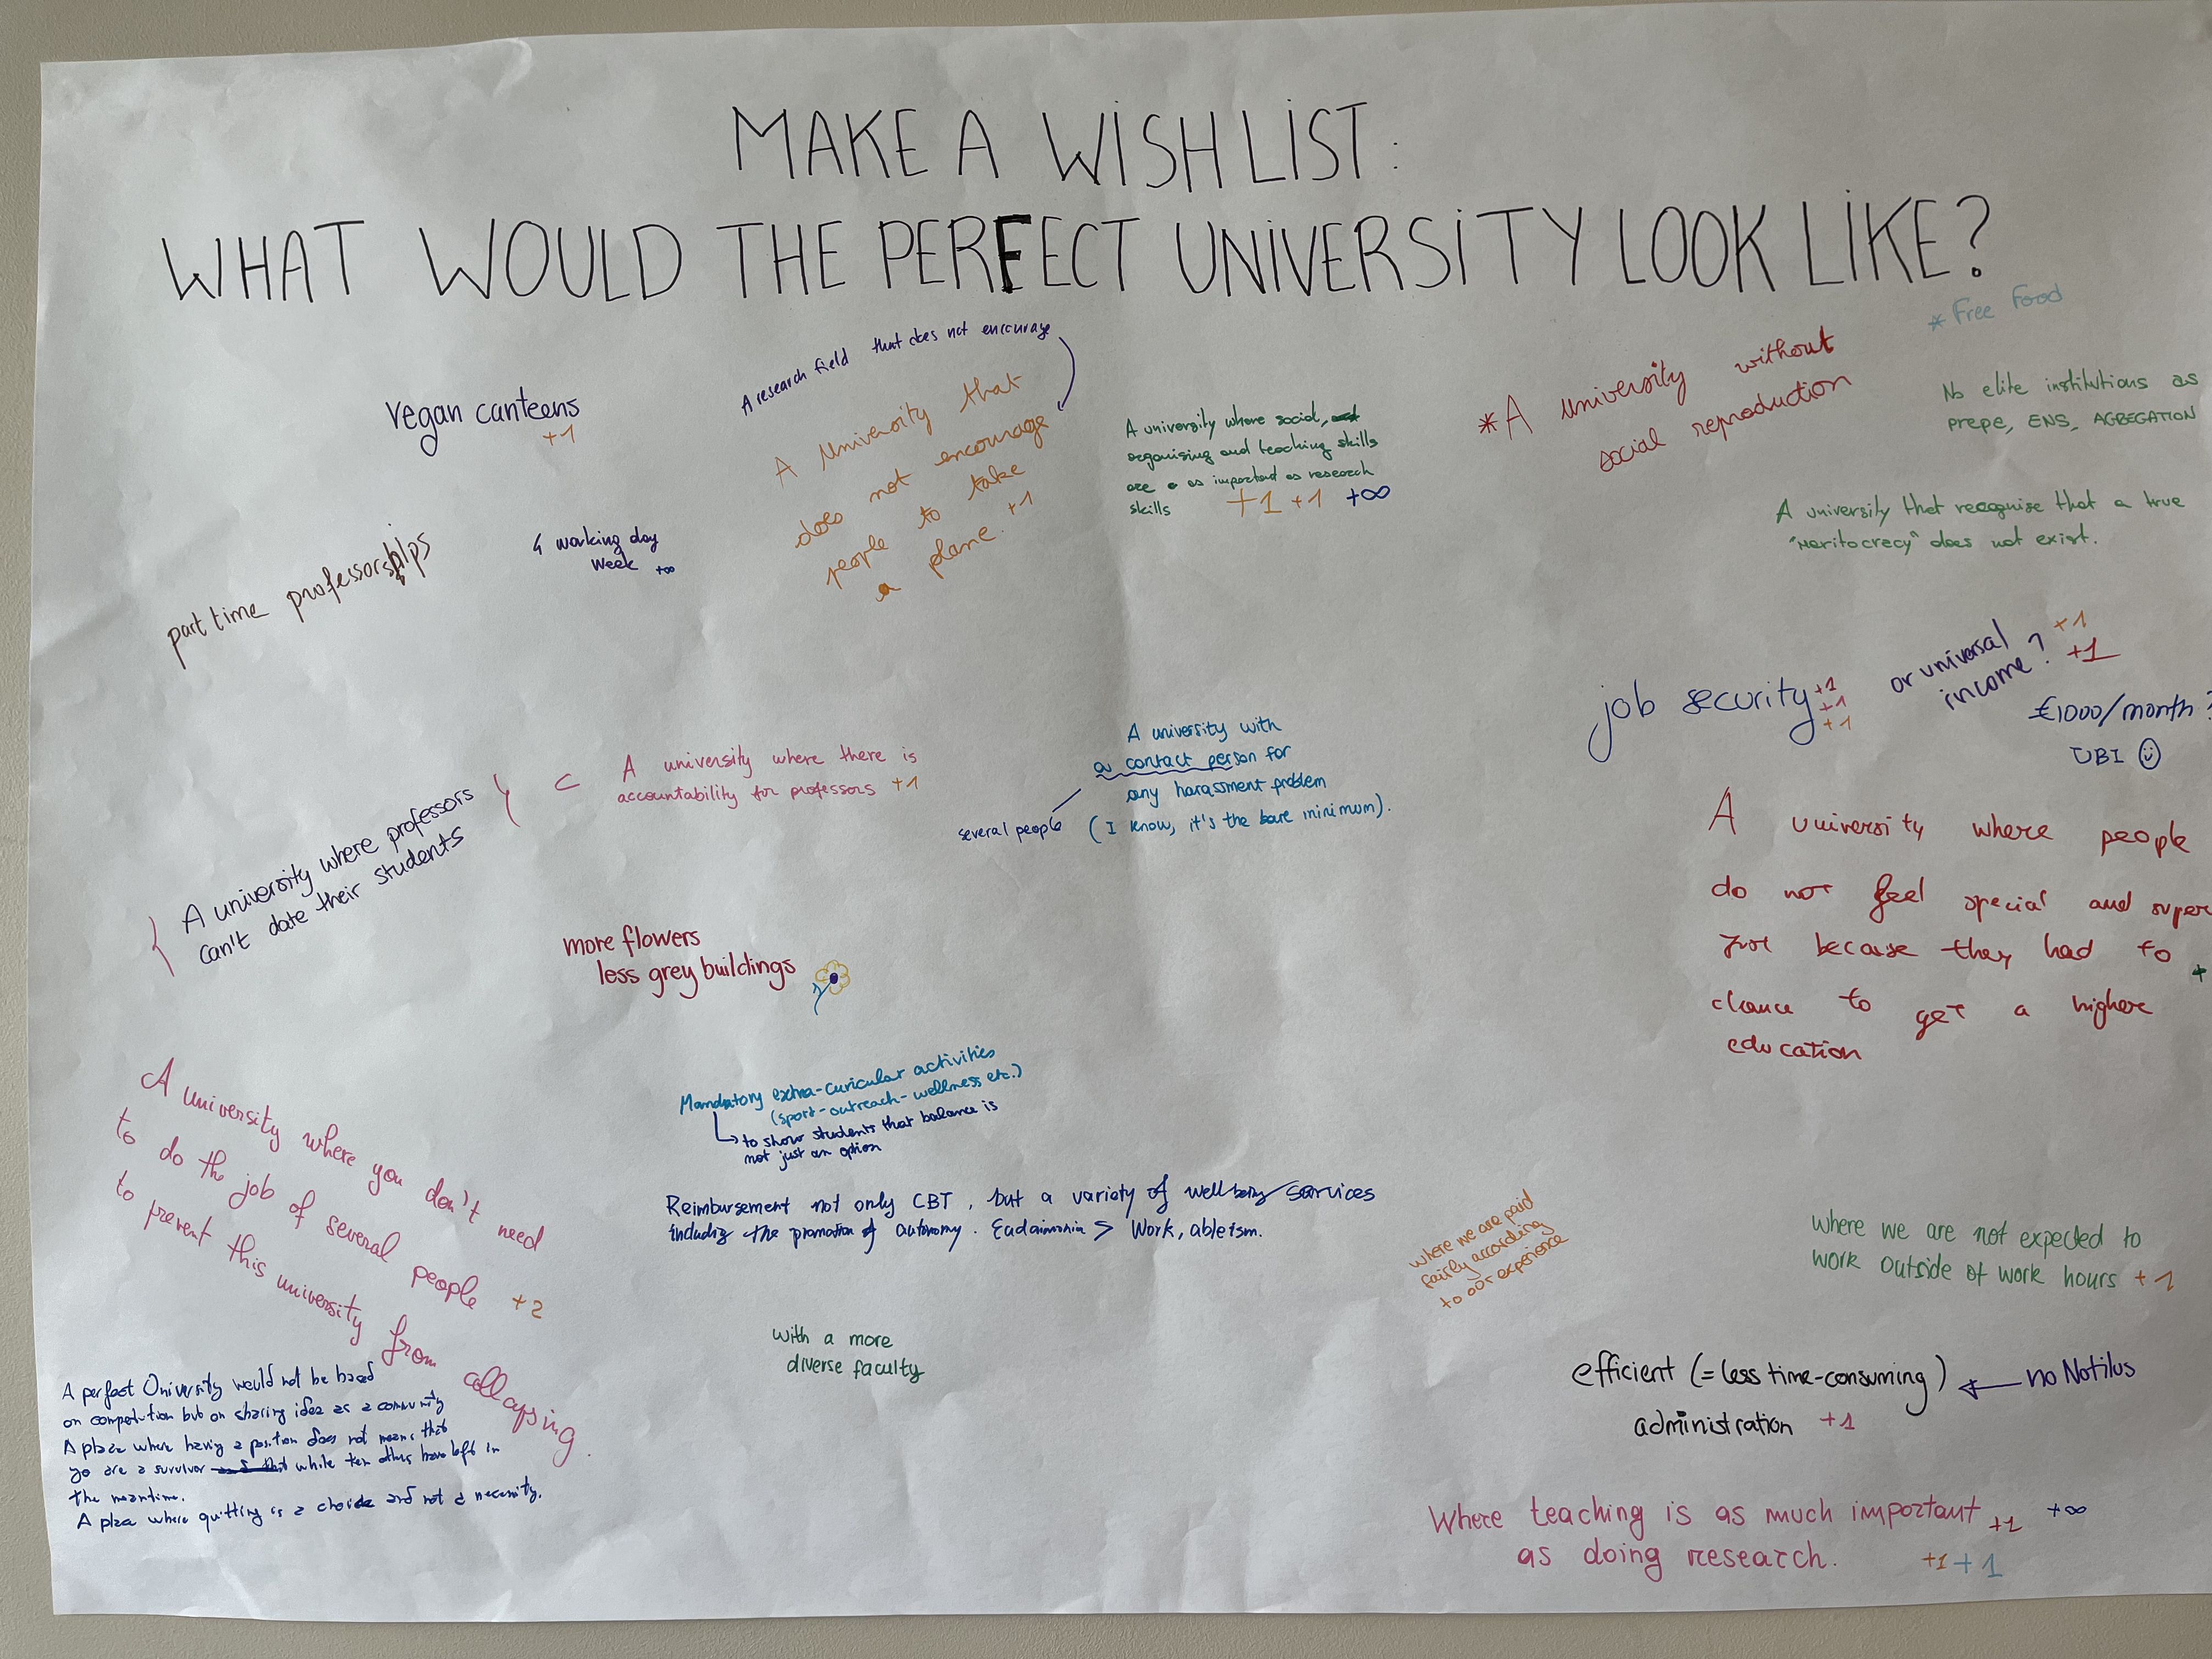 MAKE A WISH LIST:
WHAT WOULD THE PERFECT UNIVERSITY LOOK LIKE?
* Free Food
A research field that does not encourage
vegan canteens
+1
A University that
does not encourage
people to take
a plane. +1
A university where social,
organising and teaching skills
are as important as research
skills +1 +1 +∞
*A university without
social reproduction
No elite institutions as
prepe, ENS, AGREGATION
A university that recognise that a true
"Meritocrecy" does not exist.
part time professorships
4 working day
week +∞
job security +1
+1
+1
or universal
income? +1
+1
€1000/month?
UBI
A university where professors
can't date their students
⊂ A university where there is
accountability for professors +1
A university with
a contact person for
any harassment problem
(I know, it's the bare minimum).
several people
A university where people
do not feel special and super
just because they had to +
chance to get a highere
education
more flowers
less grey buildings
A university where you don't need
to do the job of several people +2
to prevent this university from collapsing.
Mandatory extra-curicular activities
(sport-outreach-wellness etc.)
to show students that balance is
not just an option
Reimbursement not only CBT, but a variety of wellbeing services
including the promotion of autonomy. Eudaimonia > Work, ableism.
where we are paid
fairly according
to our experience
where we are not expected to
work outside of work hours +1
with a more
diverse faculty
efficient (=less time-consuming) ← no Notilus
administration +1
A perfect University would not be based
on competition but on sharing idea as a community
A place where having a position does not means that
yo are a survivor while ten others have left in
the meantime.
A place where quitting is a choice and not a necessity.
Where teaching is as much important +1 +∞
as doing research. +1 +1